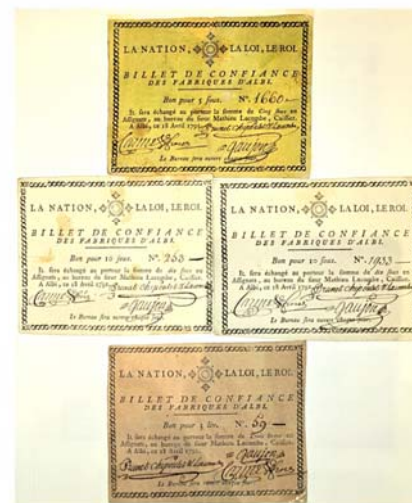 LA NATION, LA LOI, LE ROI.
BILLET DE CONFIANCE
DES FABRIQUES D'ALBI.
Bon pour 5 sous. N°. 1660
Il sera échangé au porteur la somme de Cinq sous en
Assignats, au bureau du sieur Mathieu Lacombe, Caissier.
A Albi, ce 18 Avril 1792.
gausserand
Le Bureau sera ouvert
LA NATION, LA LOI, LE ROI.
BILLET DE CONFIANCE
DES FABRIQUES D'ALBI.
Bon pour 10 sous. N°. 263
Il sera échangé au porteur la somme de dix sous en
Assignats, au bureau du sieur Mathieu Lacombe, Caissier.
A Albi, ce 18 Avril 1792.
Le Bureau sera ouvert chaque
LA NATION, LA LOI, LE ROI.
BILLET DE CONFIANCE
DES FABRIQUES D'ALBI.
Bon pour 10 sous. N°. 1933
Il sera échangé au porteur la somme de dix sous en
Assignats, au bureau du sieur Mathieu Lacombe, Caissier.
A Albi, ce 18 Avril 1792.
Le Bureau sera ouvert chaque
LA NATION, LA LOI, LE ROI.
BILLET DE CONFIANCE
DES FABRIQUES D'ALBI.
Bon pour 3 liv. N°. 59
Il sera échangé au porteur la somme de en
Assignats, au bureau du sieur Mathieu Lacombe, Caissier.
A Albi, ce 18 Avril 1792.
Le Bureau sera ouvert